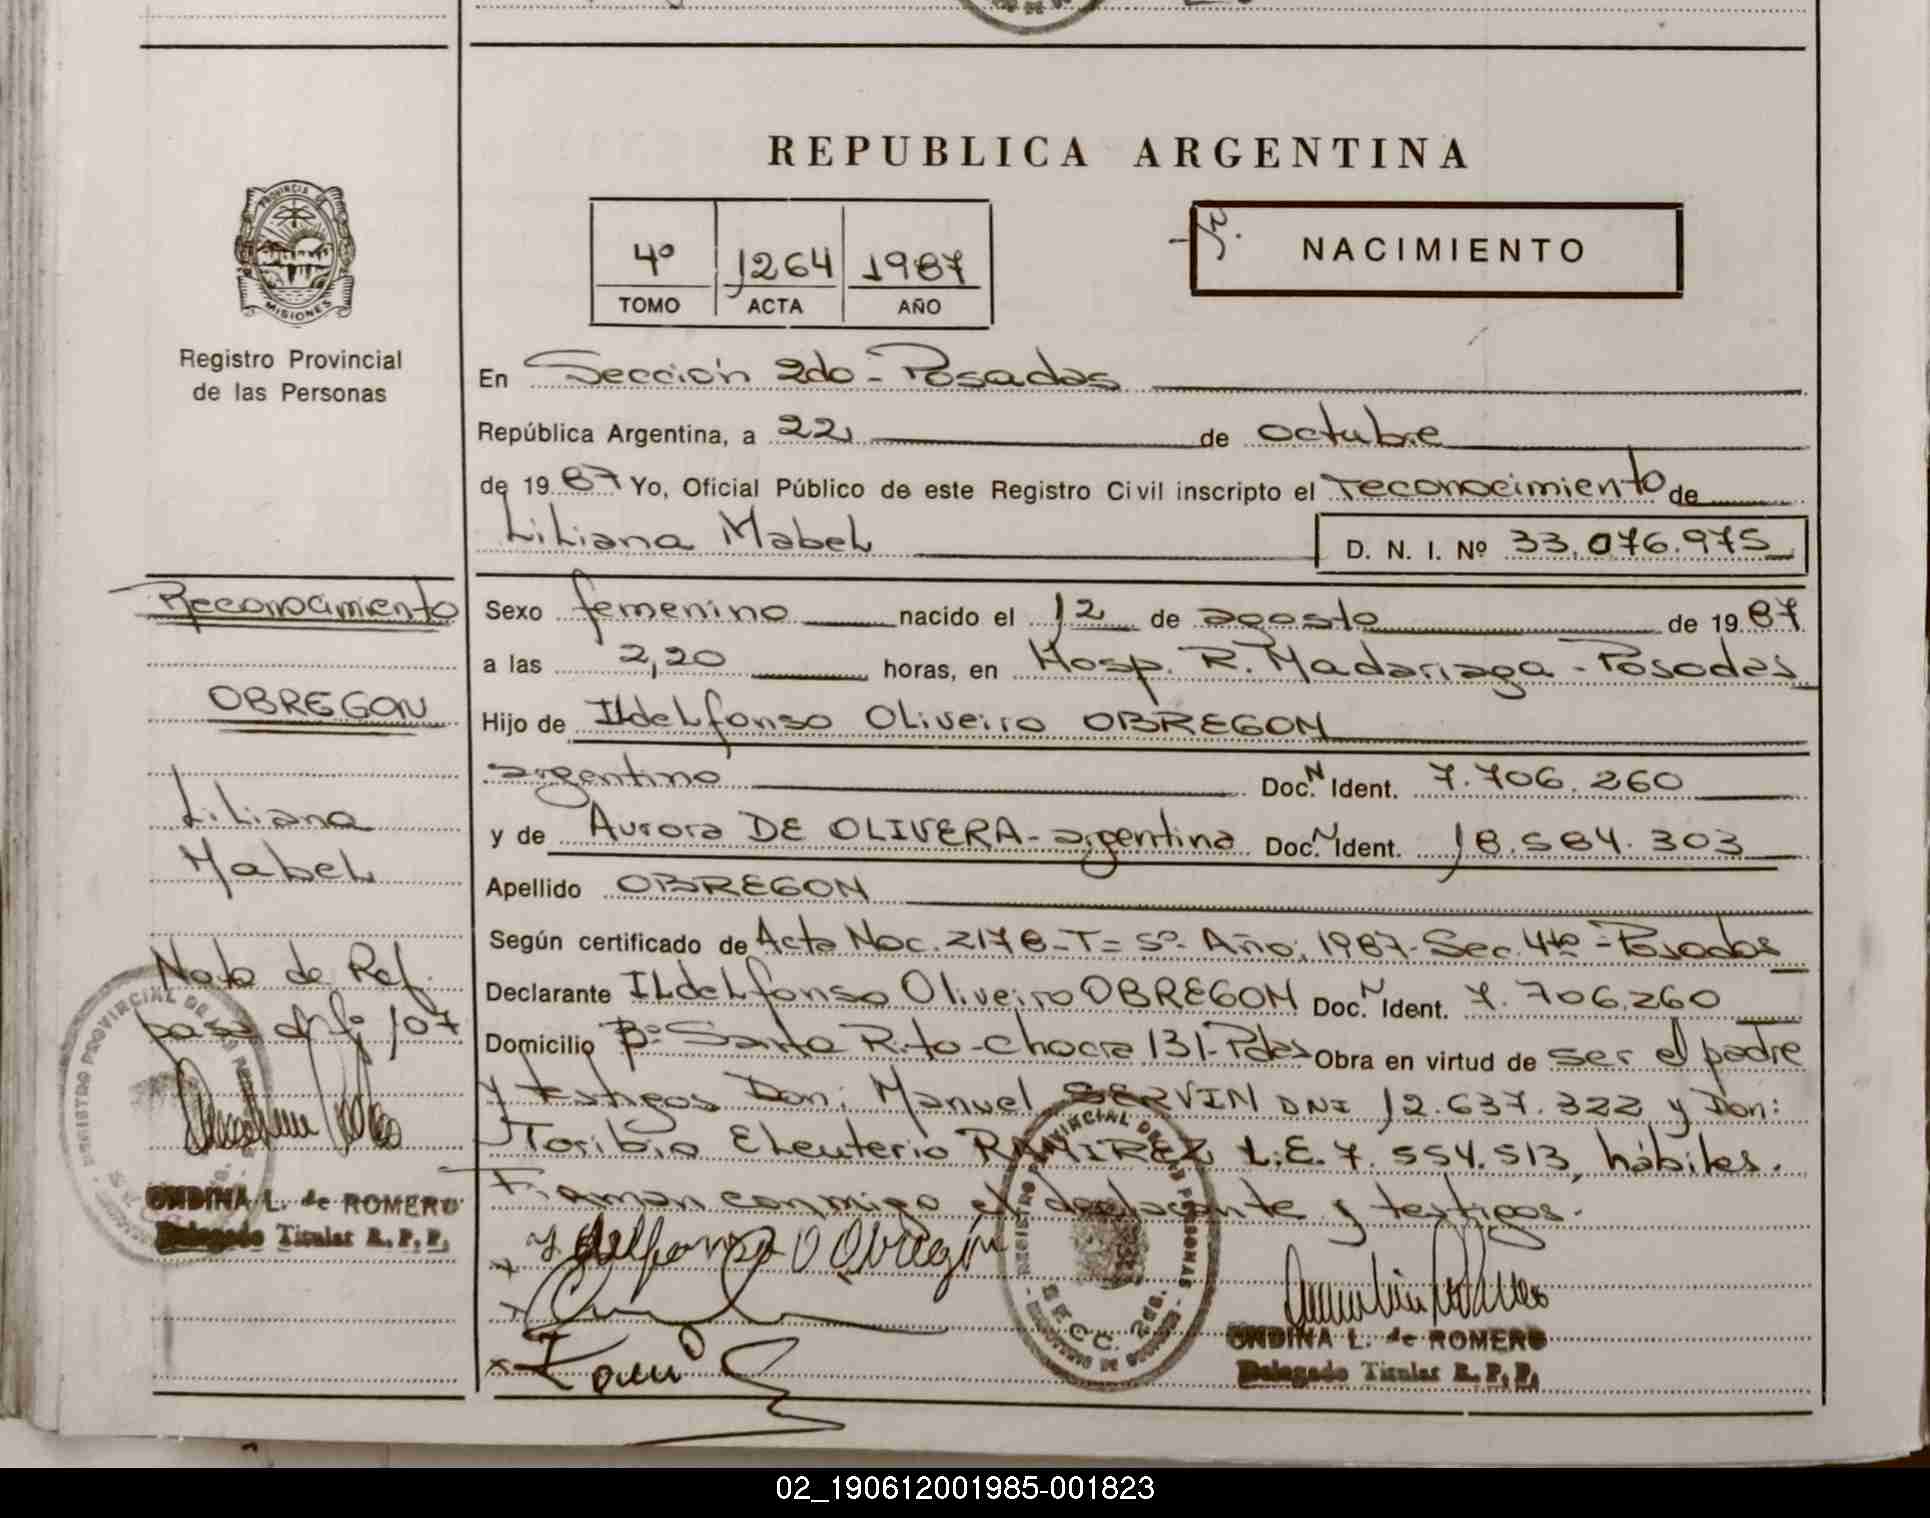 REPUBLICA ARGENTINA
PROVINCIA DE
MISIONES
Registro Provincial
de las Personas
4º 1264 1987
TOMO ACTA AÑO
NACIMIENTO
En Sección 2da - Posadas
República Argentina, a 22 de octubre
de 1987 Yo, Oficial Público de este Registro Civil inscripto el reconocimiento de
Liliana Mabel D. N. I. Nº 33.076.975
Reconocimiento
OBREGON
Liliana
Mabel
Nota de Ref.
pasa al fº 107
ONDINA L. de ROMERO
Delegado Titular R. P. P.
Sexo femenino nacido el 12 de agosto de 1987
a las 2,20 horas, en Hosp. R. Madariaga - Posadas
Hijo de Ildelfonso Oliveiro OBREGON
argentino Doc. N Ident. 7.706.260
y de Aurora DE OLIVERA - argentina Doc. N Ident. 18.584.303
Apellido OBREGON
Según certificado de Acta Nac. 2178 - T= 5º - Año: 1987 - Sec. 4ta - Posadas
Declarante Ildelfonso Oliveiro OBREGON Doc. N Ident. 7.706.260
Domicilio Bº Santa Rita - Chacra 131 - Pdas Obra en virtud de ser el padre
y testigos Don: Manuel SERVIN DNI 12.637.322 y Don:
Toribio Eleuterio RAMIREZ L.E. 7.554.513, hábiles.
Firman conmigo el declarante y testigos.
Ydelfonso O Obregon
ONDINA L. de ROMERO
Delegado Titular R. P. P.
02_190612001985-001823